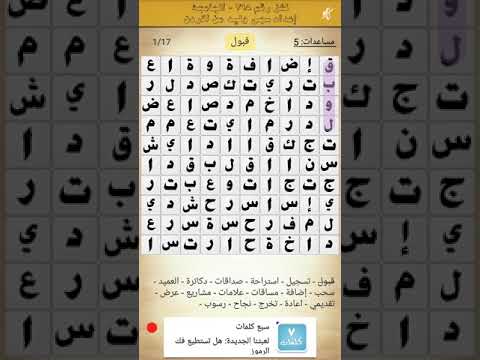 مساعدات: 5
قبول
1/17
ق إ ض ا ف ة و ة ا ع
ب ت ر ي ت ك ص د ل ر
و د ا خ م د ص ا ع ض
ل د ر م ا ي ت ع م م
ت ج ك ق ا ا د ا ي ش
س ن ا ا ق ل ب ق د ا
ج ت ج ا ت و ع ب ت ر
ي إ س ا س ر ح ش د ي
ل م ف ر ح س ة س ر ع
د ا خ ة ح ا ر ت س ا
قبول - تسجيل - استراحة - صداقات - دكاترة - العميد -
سحب - إضافة - مساقات - علامات - مشاريع - عرض -
تقديمي - اعادة - تخرج - نجاح - رسوب -
سبع كلمات
لعبتنا الجديدة: هل تستطيع فك
الرموز
٧
كلمات